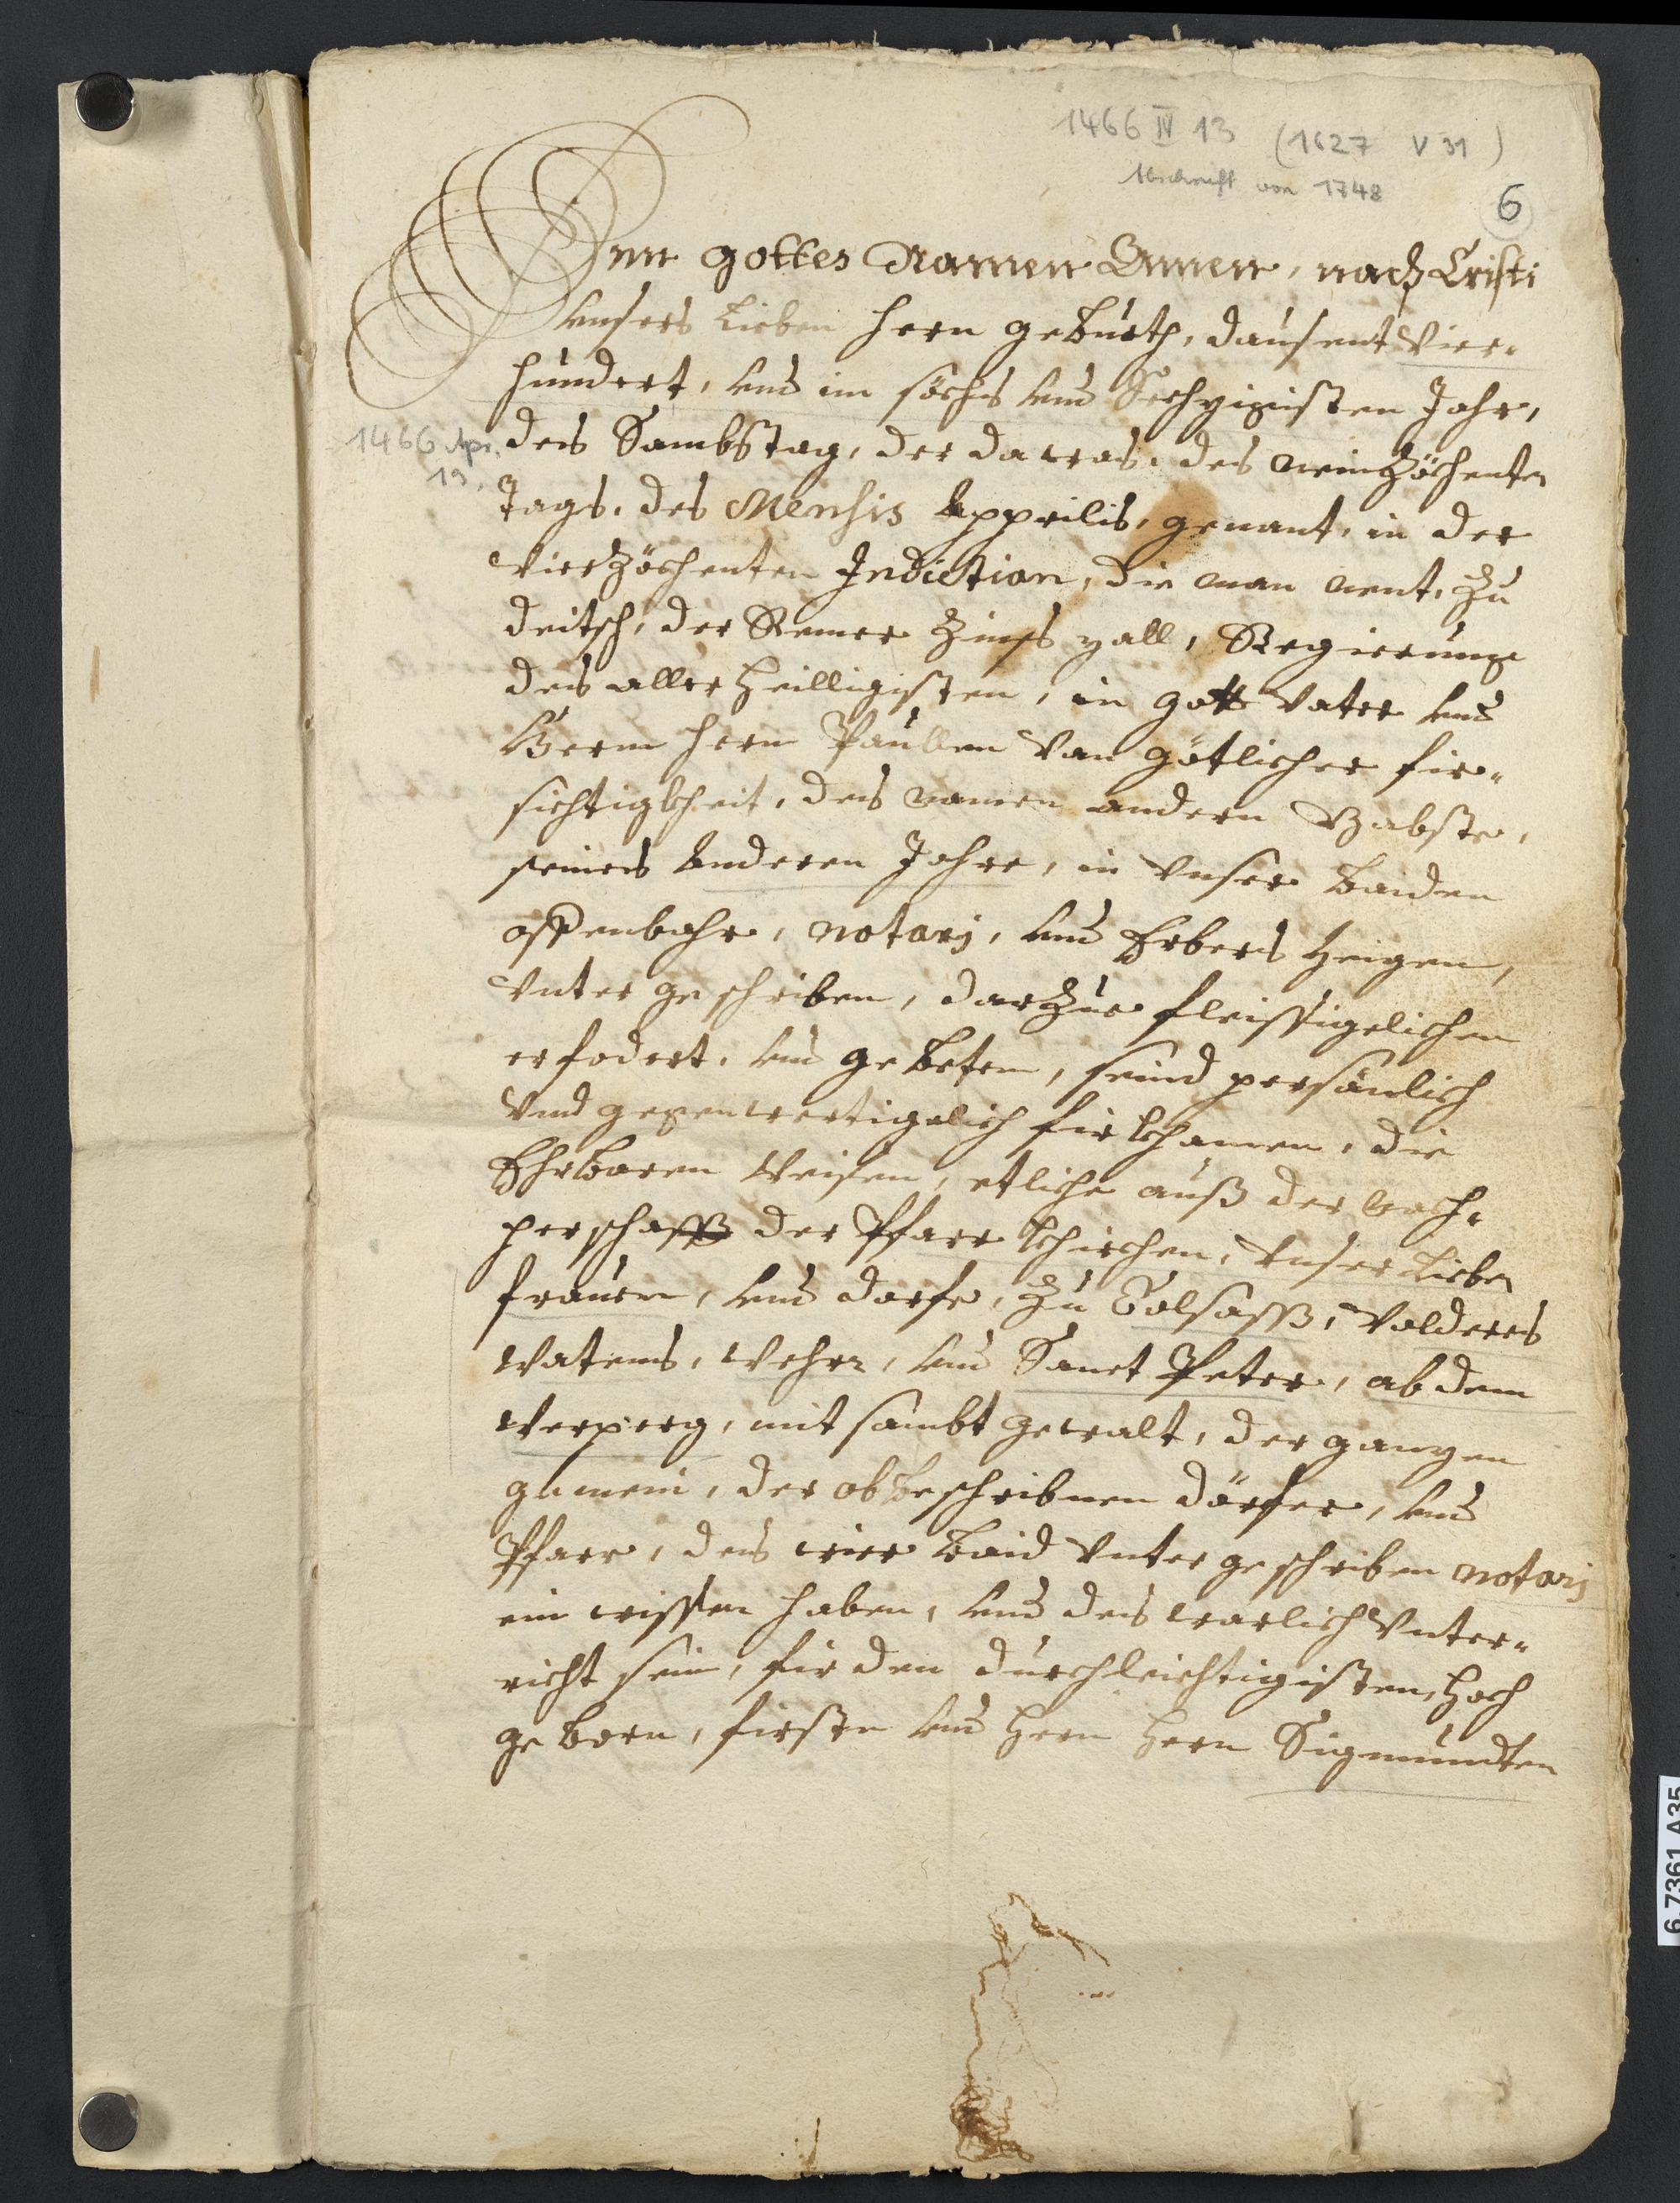 1466 IV 13 (1627 V 31)
Abschrift von 1748
6
Im gottes Namen Amen, nach Cristi
unsers Lieben hern geburth, dausent Vier-
hundert, und im söchs und Sechzigisten Jahr,
1466 Apr.
19.
des Sambstag, der da was, des neinzöchenten
Tags, des Mensis Apprilis, genant, in der
Vierzöchenten Indiction, die man nent, zu
deitsch, der Remer Zinss zall, Regierung
des allerheilligisten, in gott Vatter und
Herrn hern Paullen Von götlicher fir-
sichtigkheit, des namen andern Babste,
seines Anderen Jahre, in Unser baiden
offenbahr, notarj, und Erbers Zeigen,
Unter geschriben, darzue fleissigelichen
erfodert, und gebeten, seind persänlich
Vnd gegenwertigelich fir khamen, die
Ehrbaren Weisen, etliche auß der nach-
perschafft der Pfarr khirchen, Unser Lieben
frauen, und dorfe, zu Colsass, Volderes
Watens, Wehr, und Sanct Peter, ab dem
Werperg, mit sambt gewalt, der ganzen
gemein, der obbeschribnen dörfer, und
Pfarr, des wier baid Unter geschriben notarj
ein wissen haben, und des warlich Unter-
richt sein, fir den durchleichtigisten, Hoch
geborn, firste und Herrn Herrn Sigmundten
6.7361 A35